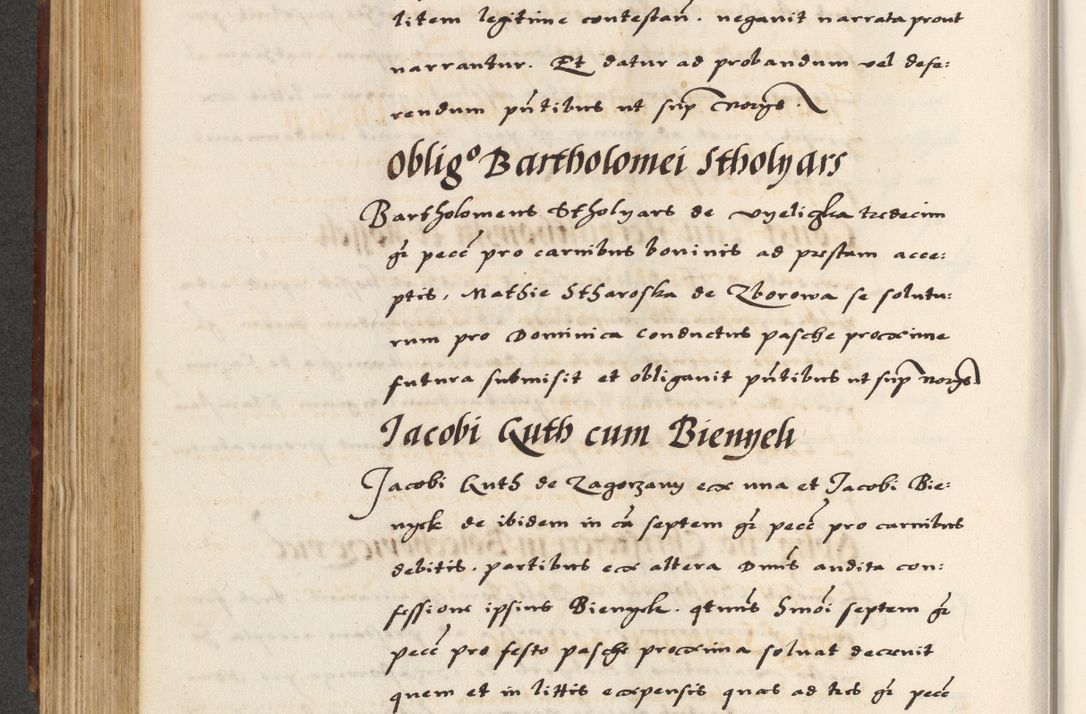 litem legitime contestan̄. negavit narrata prout
narrantur. Et datur ad probandum vel defe:
rendum pn̄tibus ut sup̄ Norÿs.
Oblig° Bartholomei Stholyars
Bartholomeus Stholyars de vyeligka tredecim
gr̄ pecc̄ pro carnibus bovinis ad prestam acce:
ptis, Mathie Stharoska de Zborowa se solutu:
rum pro Dominica conductus pasche proxime
futura submisit et obligavit pn̄tibus ut sup̄ norÿs
Jacobi Kuth cum Bienyek
Jacobi Kuth de Zagorzany ex una et Jacobi Bie:
nyek de ibidem in cā septem gr̄ pecc̄ pro carnibus
debitis. partibus ex altera Dnūs audita con:
fessione ipsius Bienyek. qtnūs hmōi septem gr̄
pecc̄ pro festo pasche proxima solvat decrevit
quem et in littis expensis quas ad tres gr̄ pecc̄